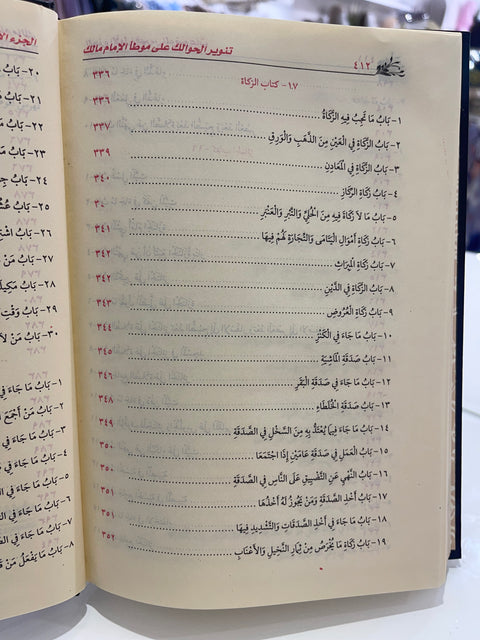 ٤١٢ تنوير الحوالك على موطأ الإمام مالك
١٧- كتاب الزكاة ٣٣٦
١- بَابُ مَا تَجِبُ فِيهِ الزَّكَاةُ ٣٣٦
٢- بَابُ الزَّكَاةِ فِي الْعَيْنِ مِنَ الذَّهَبِ وَالْوَرِقِ ٣٣٧
٣- بَابُ الزَّكَاةِ فِي الْمَعَادِنِ ٣٣٩
٤- بَابُ زَكَاةِ الرِّكَازِ ٣٤٠
٥- بَابُ مَا لاَ زَكَاةَ فِيهِ مِنَ الْحُلِيِّ وَالتِّبْرِ وَالْعَنْبَرِ ٣٤٠
٦- بَابُ زَكَاةِ أَمْوَالِ الْيَتَامَى وَالتِّجَارَةِ لَهُمْ فِيهَا ٣٤١
٧- بَابُ زَكَاةِ الْمِيرَاثِ ٣٤٢
٨- بَابُ الزَّكَاةِ فِي الدَّيْنِ ٣٤٢
٩- بَابُ زَكَاةِ الْعُرُوضِ ٣٤٣
١٠- بَابُ مَا جَاءَ فِي الْكَنْزِ ٣٤٤
١١- بَابُ صَدَقَةِ الْمَاشِيَةِ ٣٤٥
١٢- بَابُ مَا جَاءَ فِي صَدَقَةِ الْبَقَرِ ٣٤٦
١٣- بَابُ صَدَقَةِ الْخُلَطَاءِ ٣٤٨
١٤- بَابُ مَا جَاءَ فِيمَا يُعْتَدُّ بِهِ مِنَ السَّخْلِ فِي الصَّدَقَةِ ٣٤٩
١٥- بَابُ الْعَمَلِ فِي صَدَقَةِ عَامَيْنِ إِذَا اجْتَمَعَا ٣٥٠
١٦- بَابُ النَّهْيِ عَنِ التَّضْيِيقِ عَلَى النَّاسِ فِي الصَّدَقَةِ ٣٥٠
١٧- بَابُ أَخْذِ الصَّدَقَةِ وَمَنْ يَجُوزُ لَهُ أَخْذُهَا ٣٥١
١٨- بَابُ مَا جَاءَ فِي أَخْذِ الصَّدَقَاتِ وَالتَّشْدِيدِ فِيهَا ٣٥١
١٩- بَابُ زَكَاةِ مَا يُخْرَصُ مِنْ ثِمَارِ النَّخِيلِ وَالأَعْنَابِ ٣٥٢
الجزء
٢٠- بَابُ
٢١- بَابُ
٢٢- بَابُ
٢٣- بَابُ
٢٤- بَابُ
٢٥- بَابُ
٢٦- بَابُ
٢٧- بَابُ مَنْ
٢٨- بَابُ
٢٩- بَابُ وَقْتِ
٣٠- بَابُ مَنْ
١- بَابُ مَا جَاءَ فِي
٢- بَابُ مَنْ أَجْمَعَ
٣- بَابُ مَا جَاءَ فِي
٤- بَابُ مَا جَاءَ فِي
٥- بَابُ مَا جَاءَ فِي
٦- بَابُ مَا جَاءَ فِي
٧- بَابُ مَا جَاءَ فِي
٨- بَابُ مَا يَفْعَلُ مَنْ